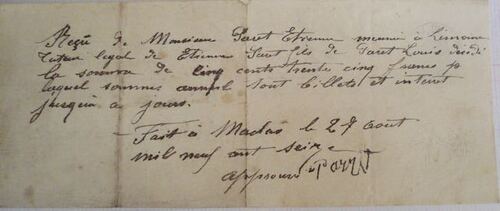 Reçu de Monsieur Paret Etienne meunié à
Tuteur legal de Etienne Paret fils de Paret Louis décédé
la somme de cinq cents trente cinq francs p
laquel sommes annul tout billets et interet
jusqu'a a jours.
Fait à Maclas le 27 aout
mil neuf cent seize
approuvé